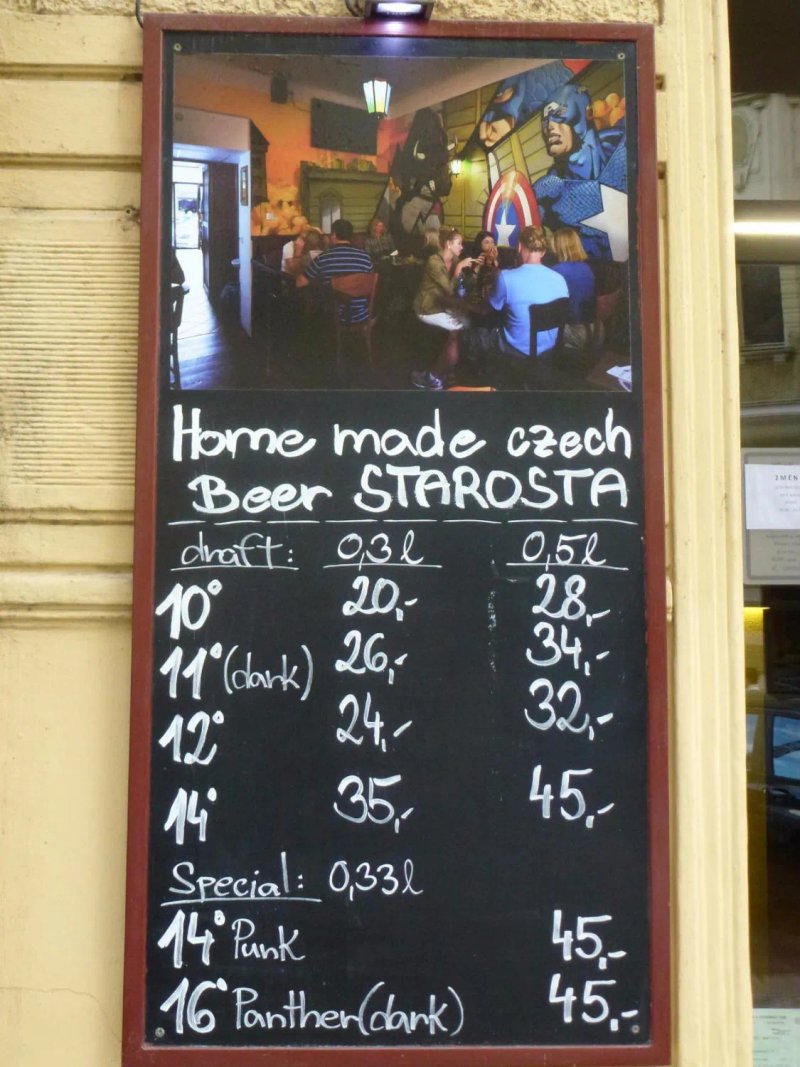 Home made czech
Beer STAROSTA
draft: 0,3l 0,5l
10° 20,- 28,-
11° (dark) 26,- 34,-
12° 24,- 32,-
14° 35,- 45,-
Special: 0,33l
14° Punk 45,-
16° Panther (dark) 45,-